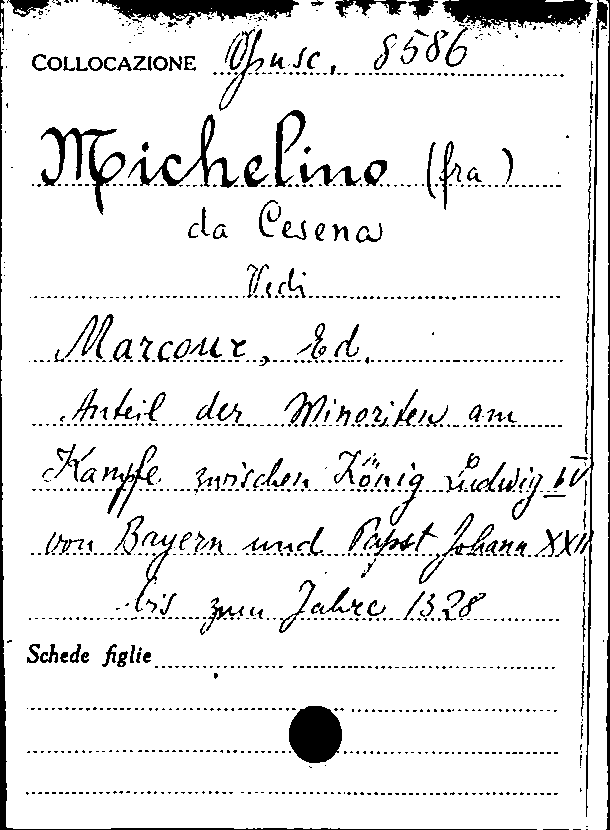 COLLOCAZIONE Opusc. 8586
Michelino (fra)
da Cesena
Vedi
Marcour, Ed.
Anteil der Minoriten am
Kampfe zwischen König Ludwig IV
von Bayern und Papst Johann XXII
bis zum Jahre 1328
Schede figlie